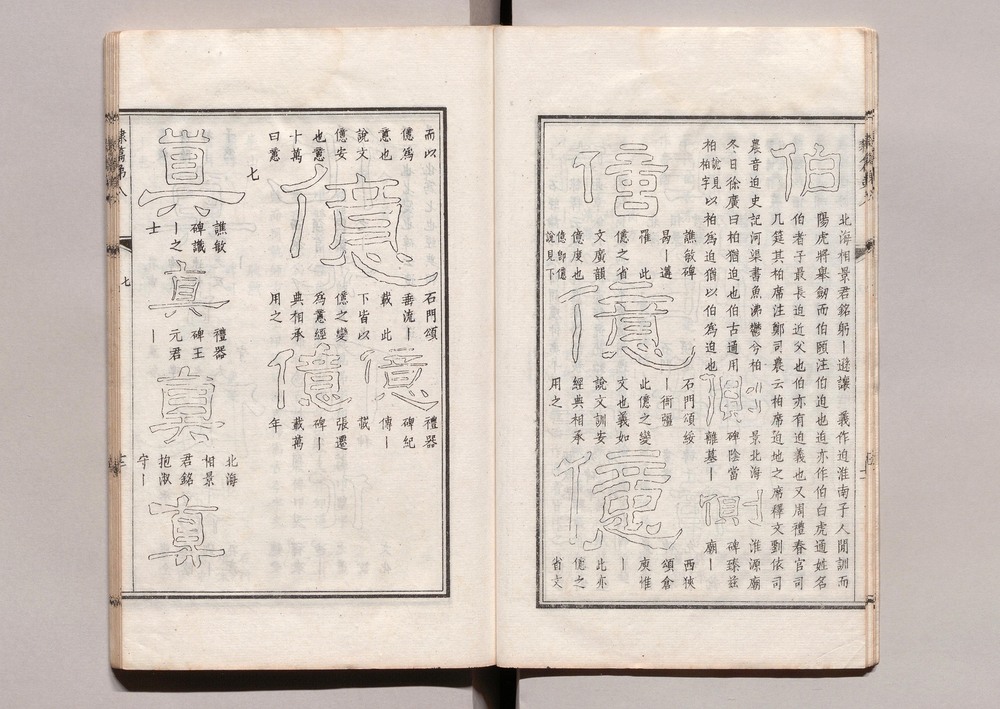 伯
北海相景君銘躬丨遜讓　義作迫淮南子人閒訓而
陽虎將舉劒而伯頤注伯迫也迫亦作伯白虎通姓名
伯者子最長迫近父也伯亦有迫義也又周禮春官司
几筵其柏席注鄭司農云柏席迫地之席釋文劉依司
農音迫史記河渠書魚沸鬱兮柏
冬日徐廣曰柏猶迫也伯古通用
柏說見柏字以柏為迫猶以伯為迫也
側
景北海
碑陰當
離墓丨
側
淮源廟
碑臻兹
廟丨
譙敏碑
曷丨遘
罹　此
億之省
文廣韻
億庾也
說見下
億
石門頌綏
丨衙彊
此億之變
文也義如
說文訓安
經典相承
用之
億
西狹
頌倉
庾惟
丨
此亦
億之
省文
而以
億為
意也
說文
億安
也意
十萬
曰意
億
石門頌
垂流丨
載　此
下皆以
億之變
為意經
典相承
用之
億
禮器
碑紀
傳丨
載
億
張遷
碑丨
載萬
年
七
真
譙敏
碑讖
丨之
士
真
禮器
碑王
元君
丨
真
北海
相景
君銘
抱淑
守丨
真
隸篇第八
七